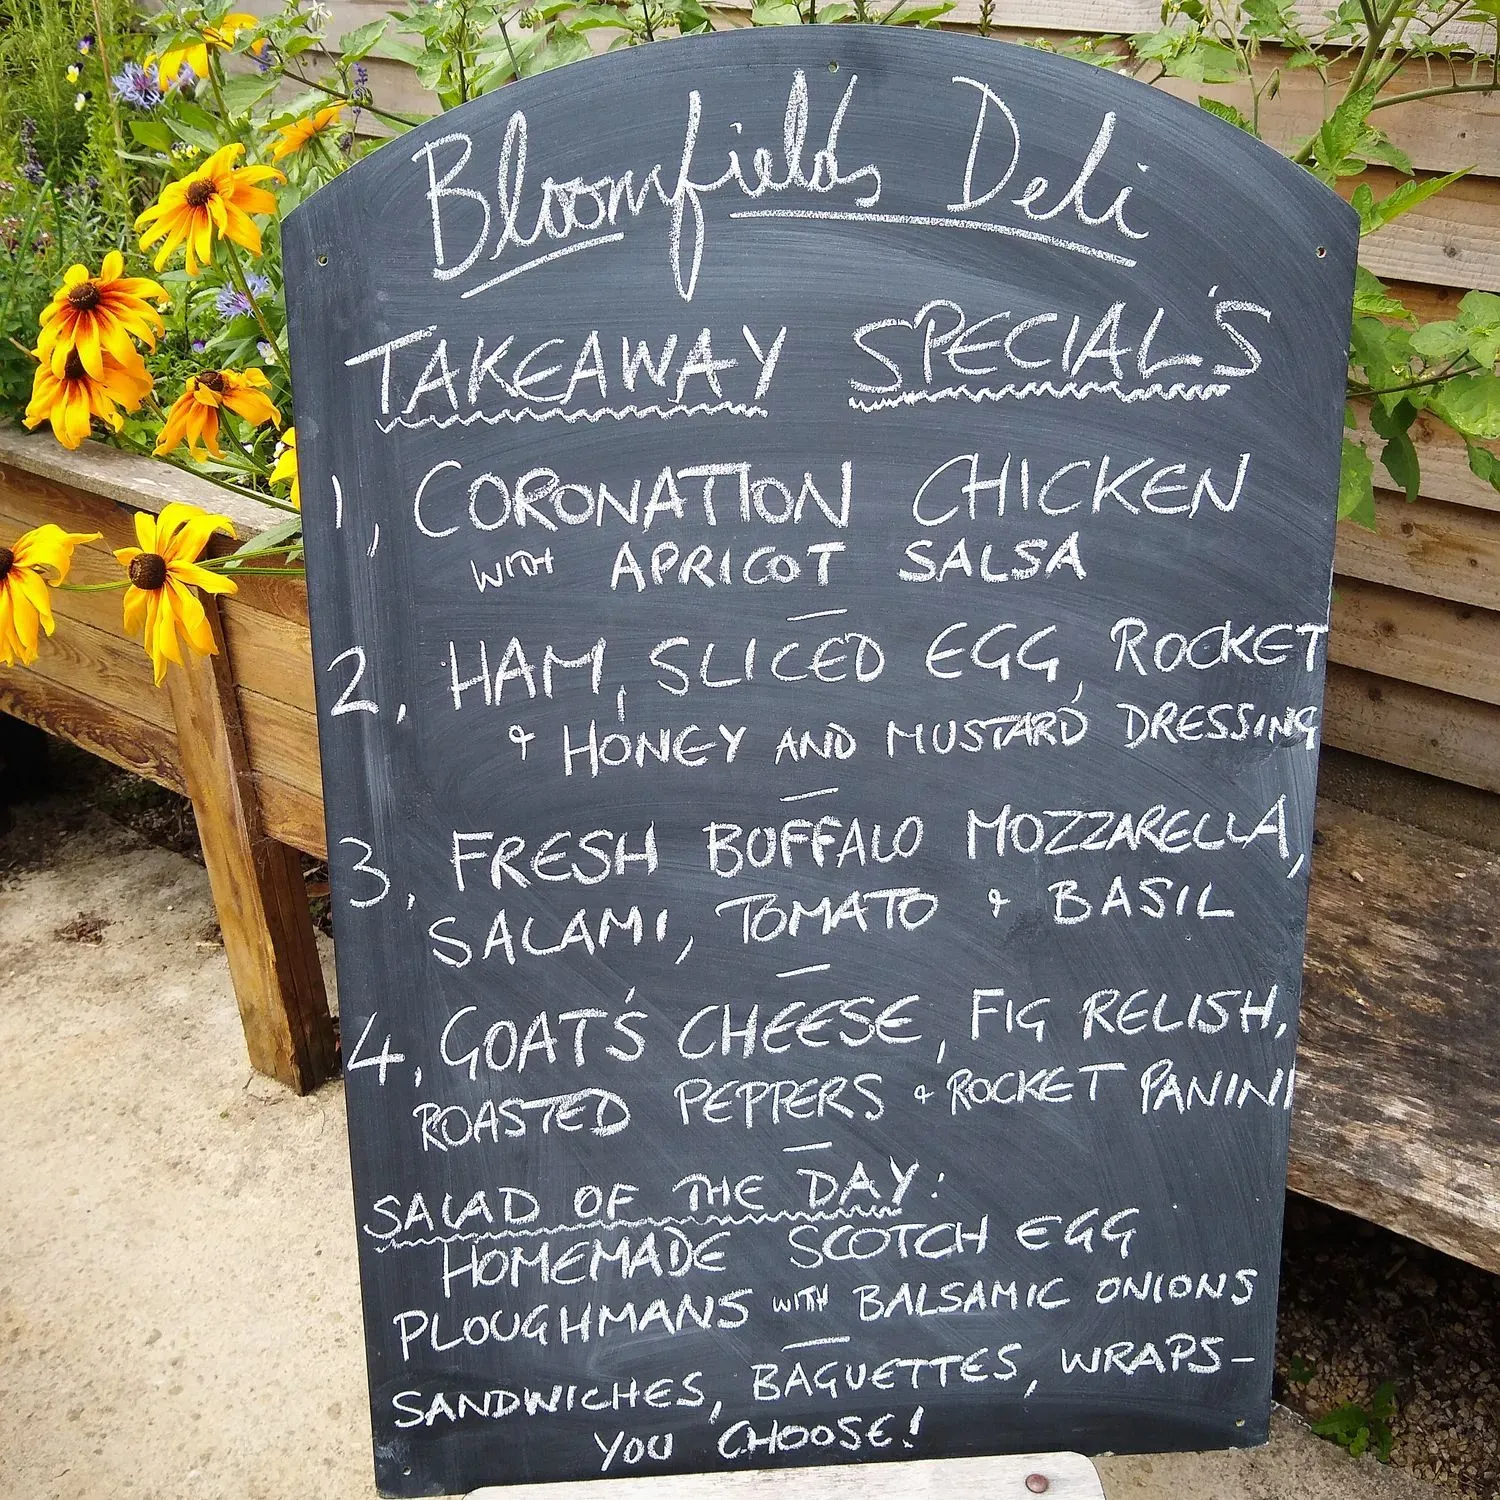 Bloomfield's Deli
TAKEAWAY SPECIAL'S
1, CORONATION CHICKEN
WITH APRICOT SALSA
2, HAM, SLICED EGG, ROCKET
& HONEY AND MUSTARD DRESSING
3, FRESH BUFFALO MOZZARELLA,
SALAMI, TOMATO & BASIL
4, GOAT'S CHEESE, FIG RELISH,
ROASTED PEPPERS & ROCKET PANINI
SALAD OF THE DAY:
HOMEMADE SCOTCH EGG
PLOUGHMANS WITH BALSAMIC ONIONS
SANDWICHES, BAGUETTES, WRAPS-
YOU CHOOSE!